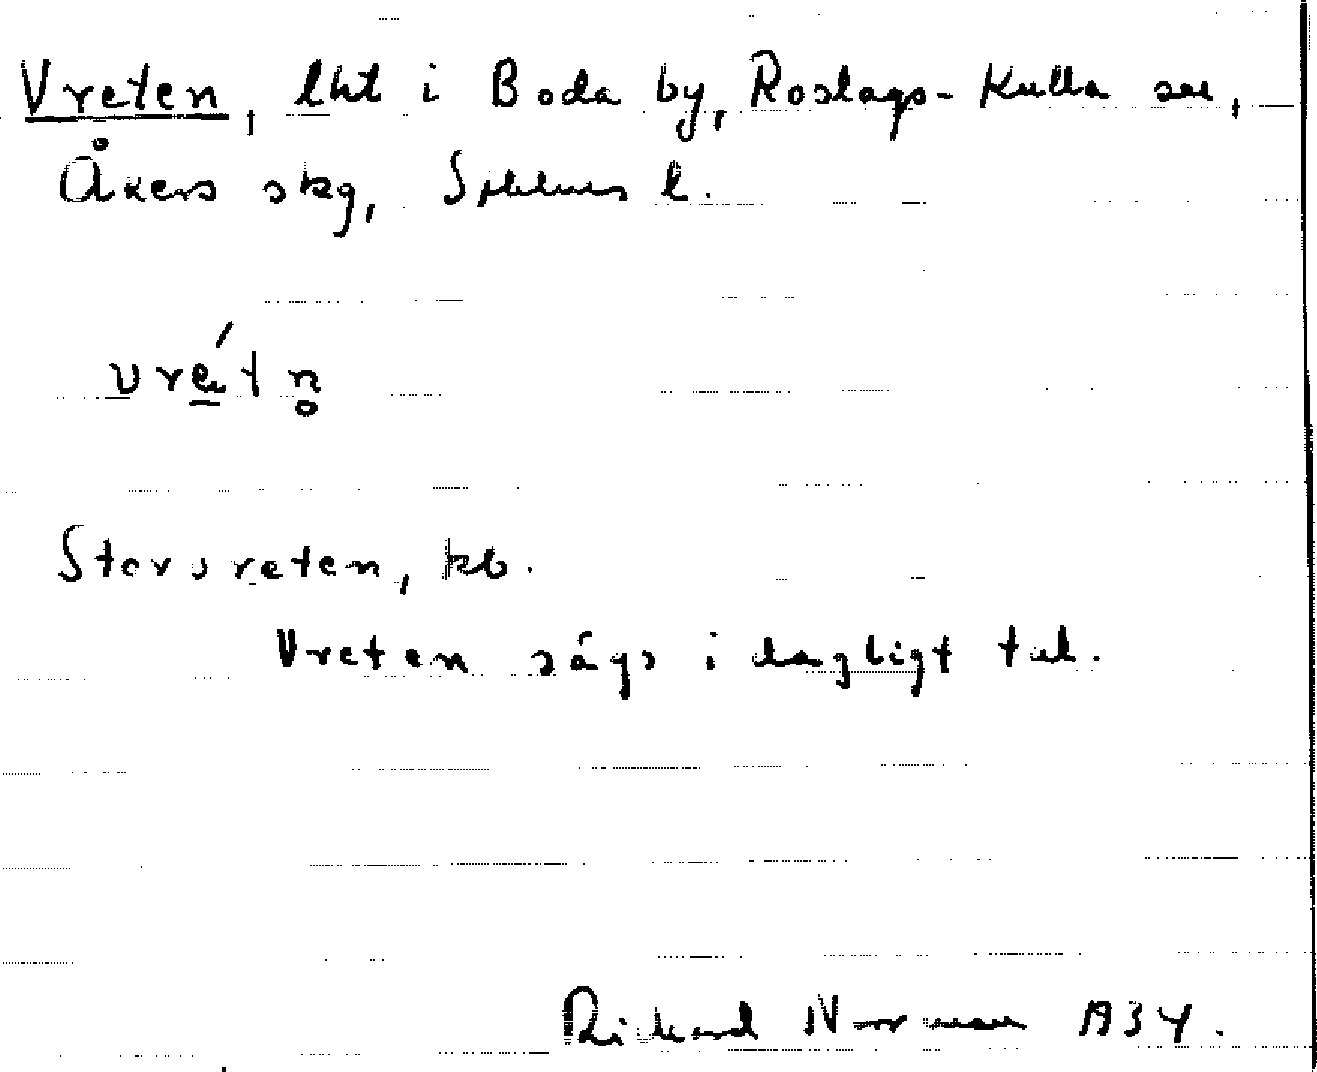 Vreten, lht i Boda by, Roslags-Kulla sn,
Åkers skg, Sthlms l.
vrét n̥
Storvreten, kb.
Vreten sägs i dagligt tal.
Rickard Norrman 1934.